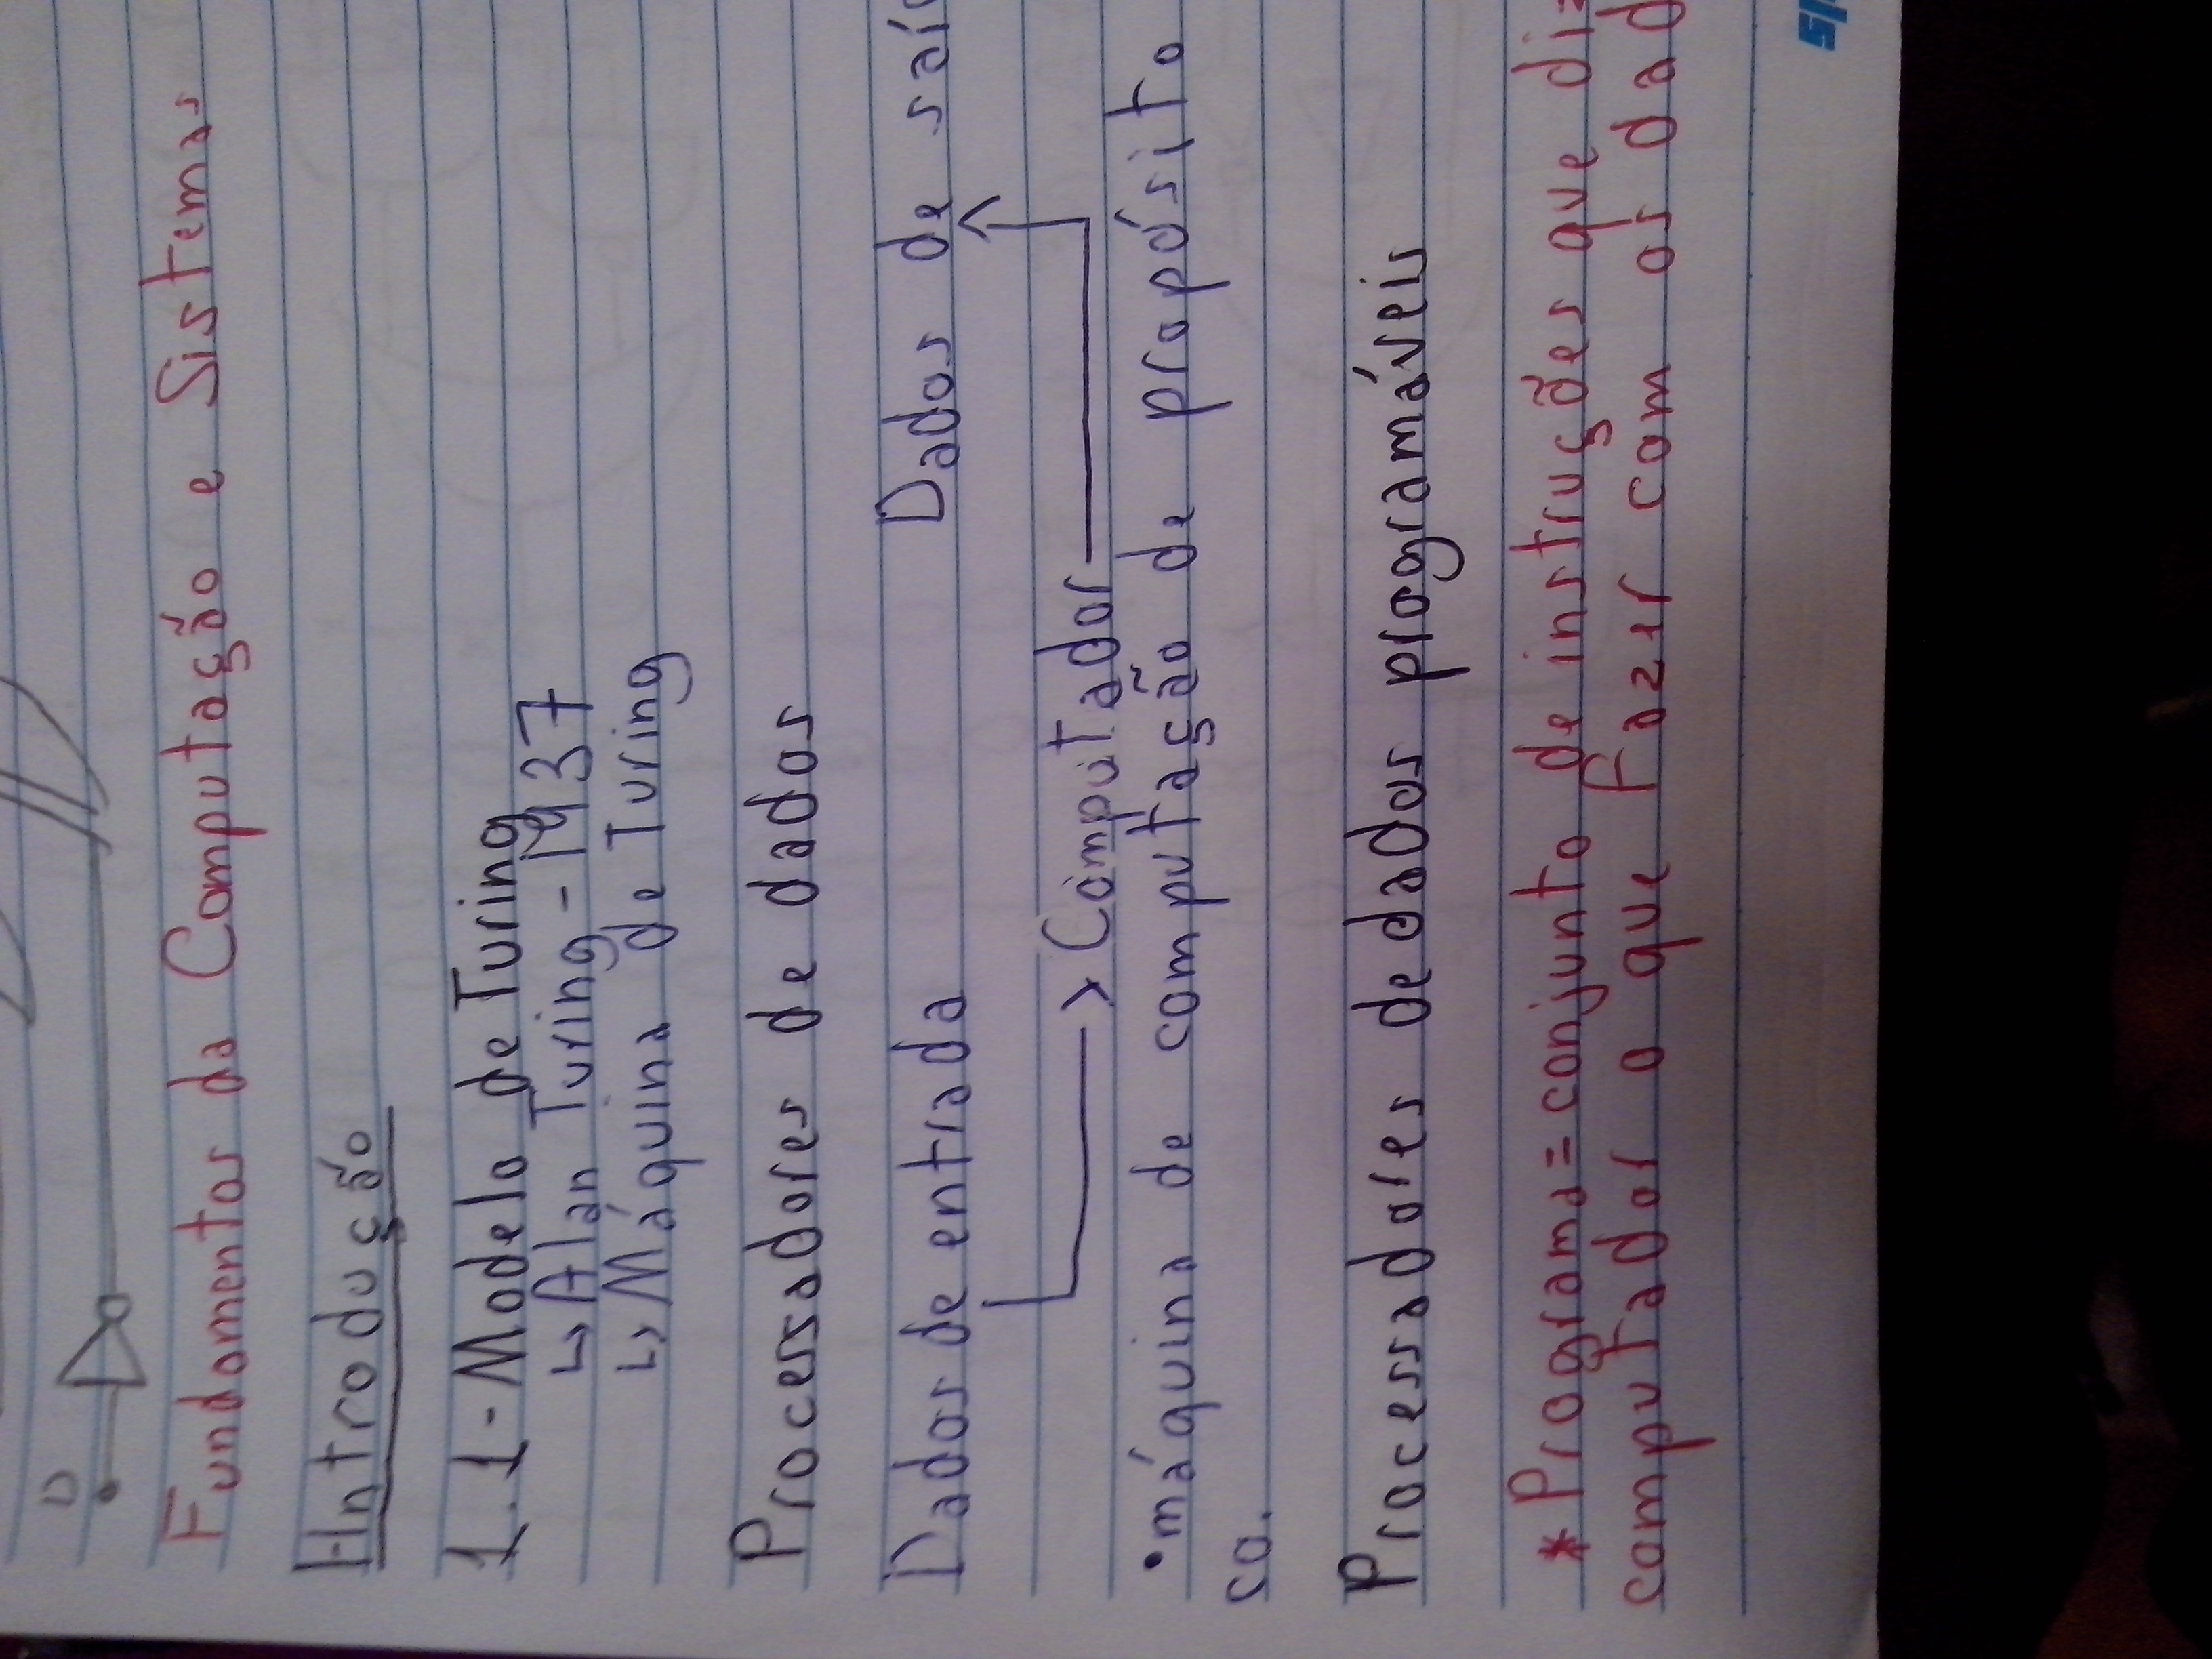 D
Fundamentos da Computação e Sistemas
1-Introdução
1.1-Modelo de Turing
↳Alan Turing-1937
↳Máquina de Turing
Processadores de dados
Dados de entrada Dados de saí
Computador
•máquina de computação de propósito
co.
Processadores de dados programáveis
*Programa=conjunto de instruções que di
computador o que fazer com os dad